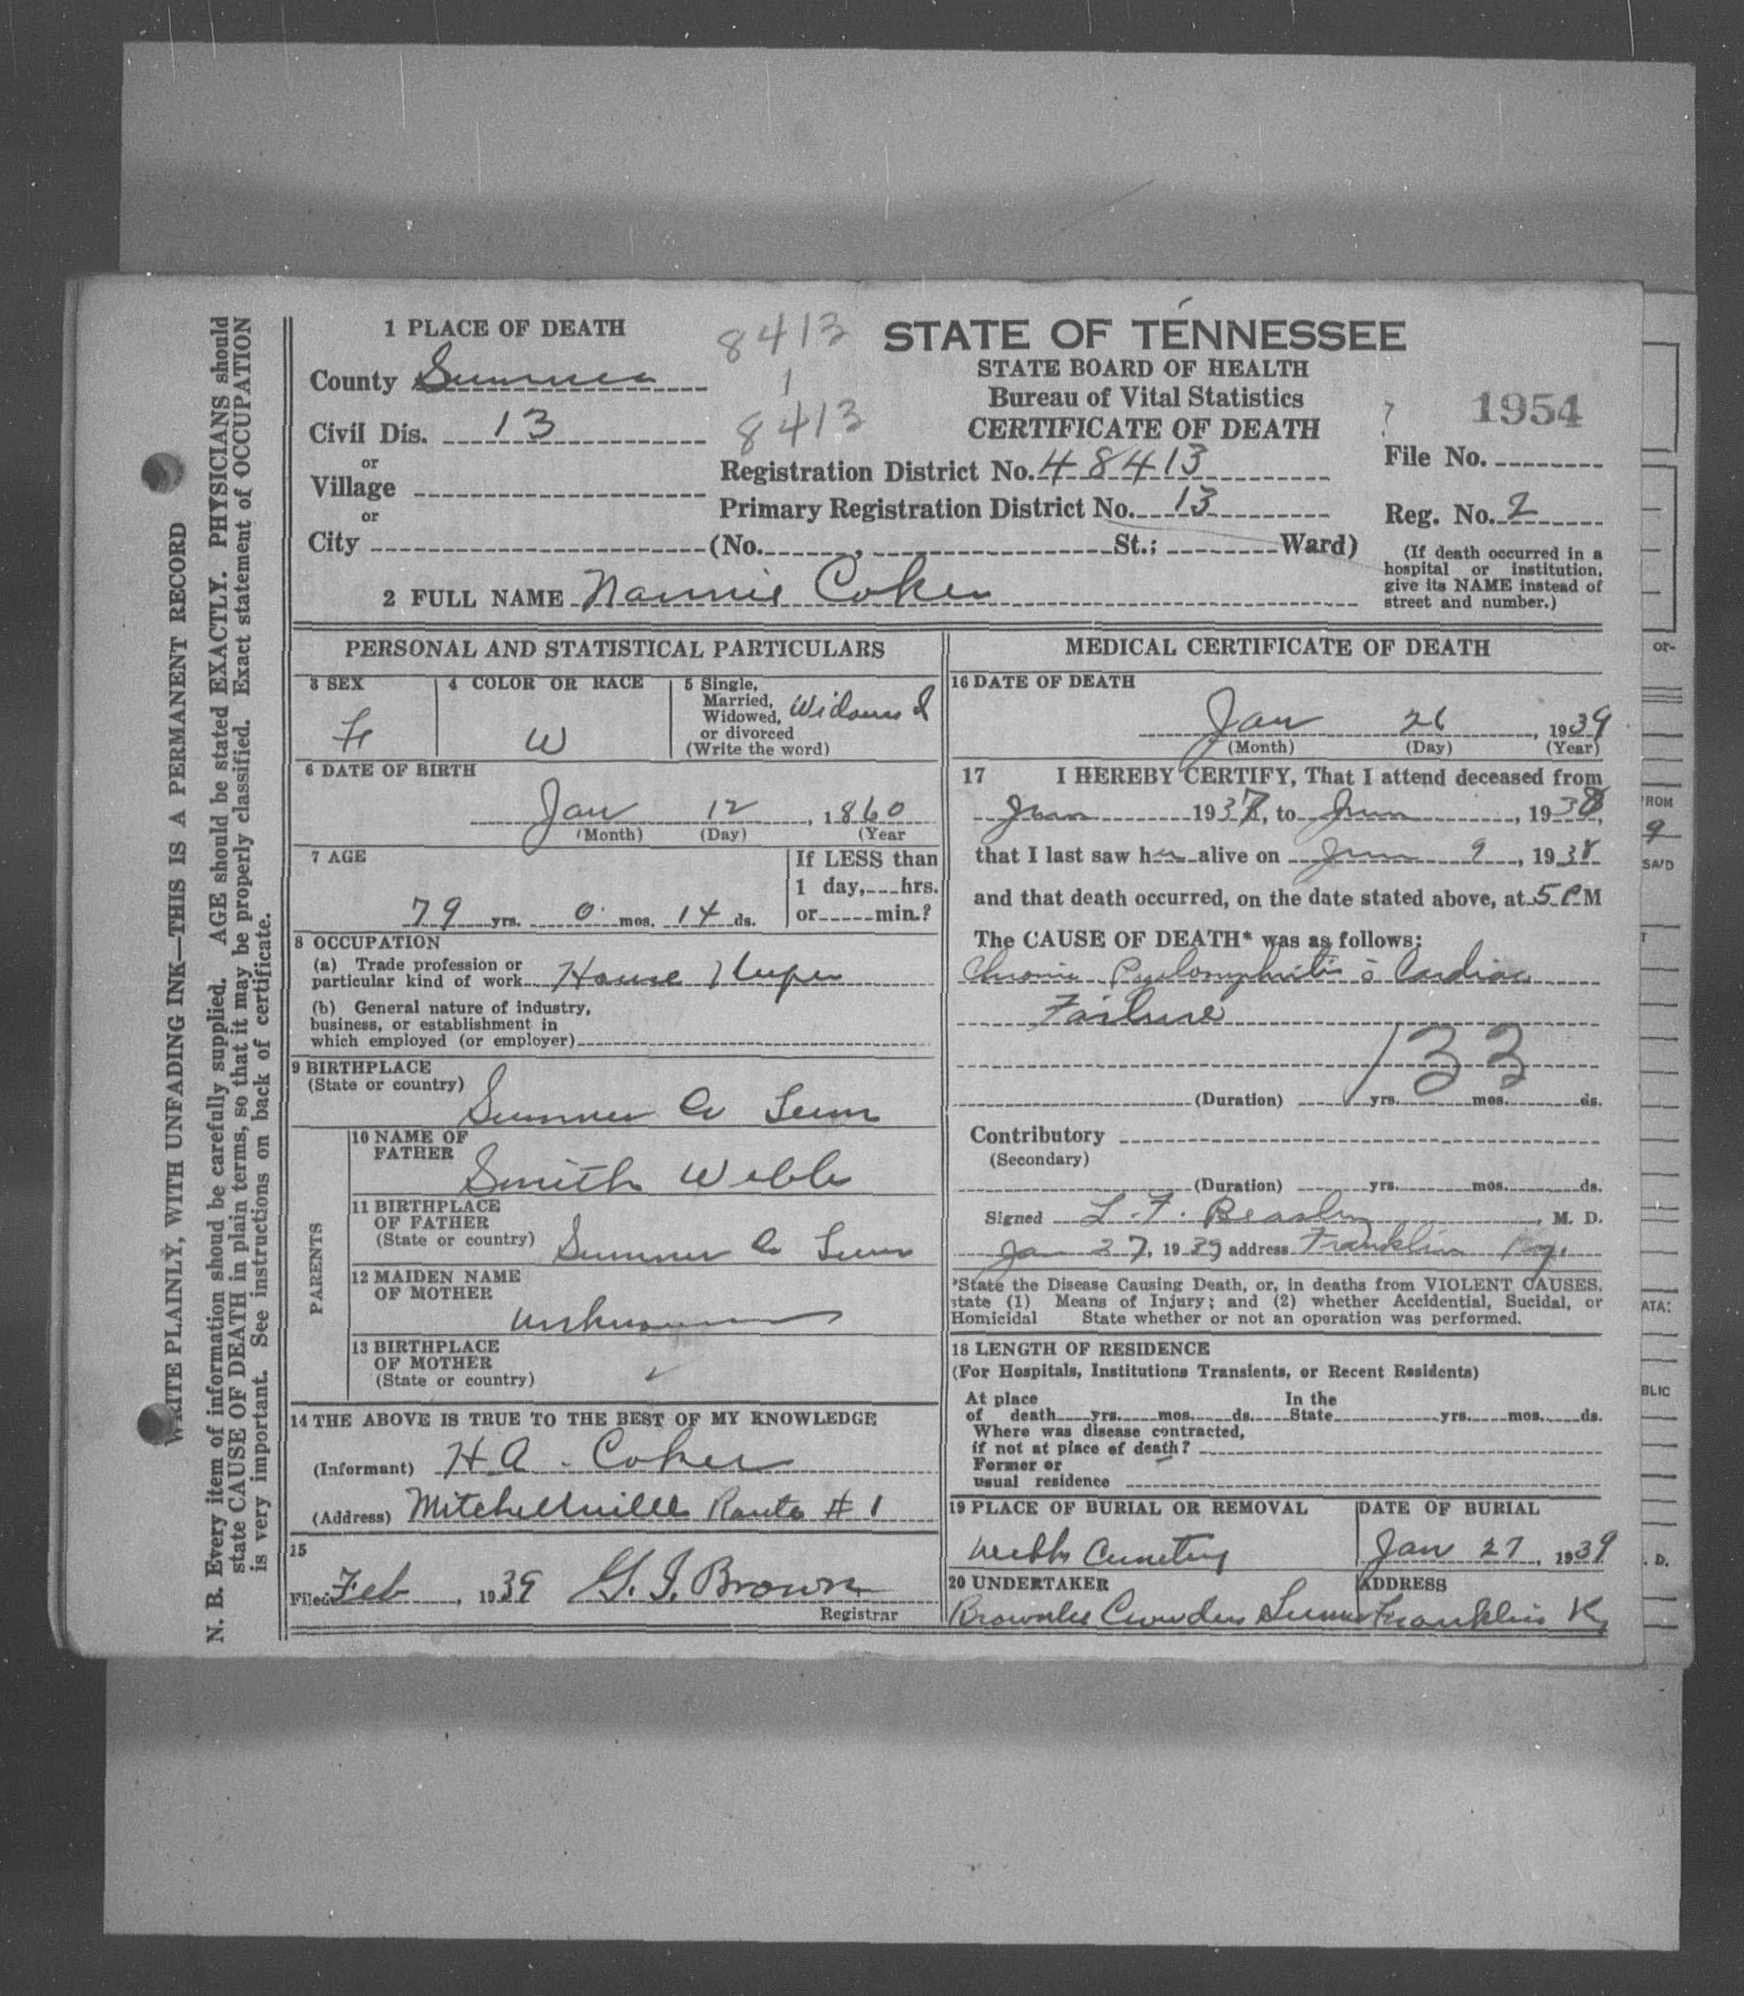 WRITE PLAINLY, WITH UNFADING INK—THIS IS A PERMANENT RECORD
N. B. Every item of information shoud be carefully supplied. AGE should be stated EXACTLY. PHYSICIANS should
state CAUSE OF DEATH in plain terms, so that it may be properly classified. Exact statement of OCCUPATION
is very important. See instructions on back of certificate.
1 PLACE OF DEATH
County Sumner
Civil Dis. 13
or
Village
or
City (No. , St.; Ward)
8413
1
8413
STATE OF TENNESSEE
STATE BOARD OF HEALTH
Bureau of Vital Statistics
CERTIFICATE OF DEATH
Registration District No. 48413
Primary Registration District No. 13
? 1954
File No.
Reg. No. 2
(If death occurred in a
hospital or institution,
give its NAME instead of
street and number.)
2 FULL NAME Nannie Coker
PERSONAL AND STATISTICAL PARTICULARS
3 SEX
Fe
4 COLOR OR RACE
W
5 Single,
Married,
Widowed,
or divorced
(Write the word)
Widowed
6 DATE OF BIRTH
Jan 12, 1860
(Month) (Day) (Year
7 AGE
79 yrs. 0 mos. 14 ds.
If LESS than
1 day, hrs.
or min.?
8 OCCUPATION
(a) Trade profession or
particular kind of work House Keeper
(b) General nature of industry,
business, or establishment in
which employed (or employer)
9 BIRTHPLACE
(State or country)
Sumner Co Tenn
PARENTS
10 NAME OF
FATHER
Smith Webb
11 BIRTHPLACE
OF FATHER
(State or country) Sumner Co Tenn
12 MAIDEN NAME
OF MOTHER
Unknown
13 BIRTHPLACE
OF MOTHER
(State or country)
14 THE ABOVE IS TRUE TO THE BEST OF MY KNOWLEDGE
(Informant) H A. Coker
(Address) Mitchellville Route # 1
15
Filed Feb, 1939 G. I. Brown
Registrar
MEDICAL CERTIFICATE OF DEATH
16 DATE OF DEATH
Jan 26, 1939
(Month) (Day) (Year)
17 I HEREBY CERTIFY, That I attend deceased from
1937, to , 1938,
that I last saw her alive on 9, 1938
and that death occurred, on the date stated above, at 5 P M
The CAUSE OF DEATH* was as follows:
Chronic Pyelonephritis c̄ Cardiac
Failure
133
(Duration) yrs. mos. ds.
Contributory
(Secondary)
(Duration) yrs. mos. ds.
Signed L. F. Beasley, M. D.
Jan 27, 1939 address Franklin Ky.
*State the Disease Causing Death, or, in deaths from VIOLENT CAUSES,
state (1) Means of Injury; and (2) whether Accidential, Sucidal, or
Homicidal State whether or not an operation was performed.
18 LENGTH OF RESIDENCE
(For Hospitals, Institutions Transients, or Recent Residents)
At place In the
of death yrs. mos. ds. State yrs. mos. ds.
Where was disease contracted,
if not at place of death?
Former or
usual residence
19 PLACE OF BURIAL OR REMOVAL
Webb Cemetery
DATE OF BURIAL
Jan 27, 1939
20 UNDERTAKER
ADDRESS
Franklin Ky
or-
FROM
9
SAID
T
ATA:
BLIC
. D.